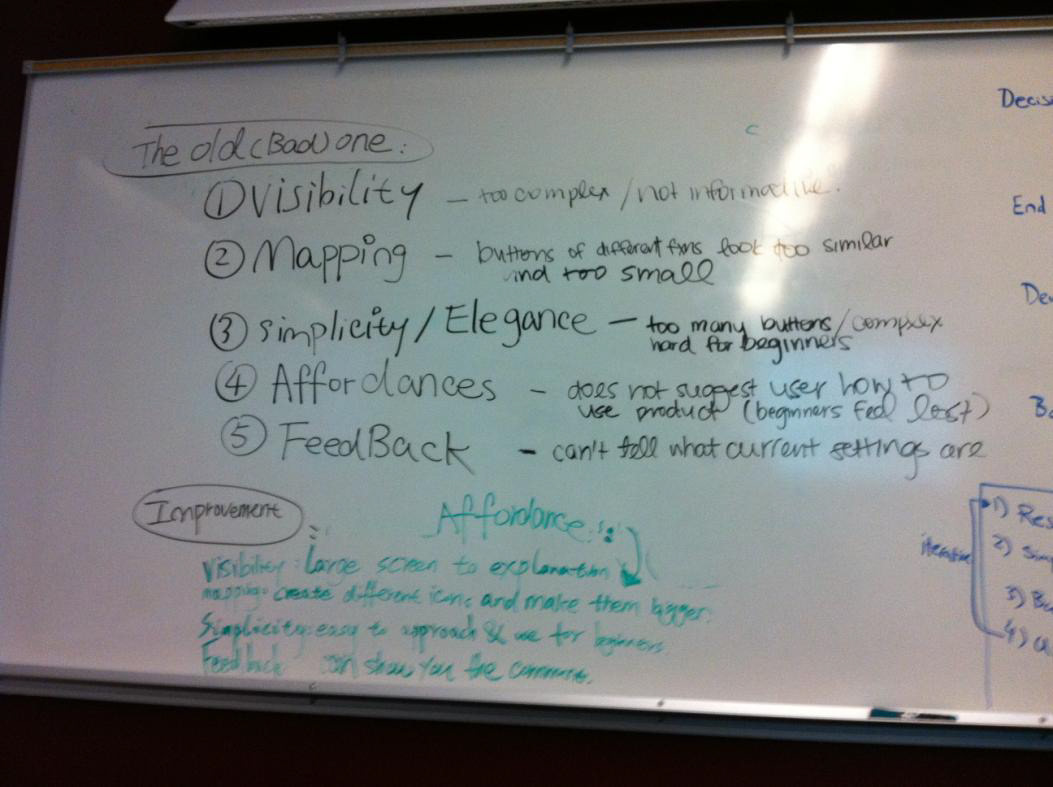 The old (Bad) one:
① Visibility - too complex / not informative.
② Mapping - buttons of different fxns look too similar
and too small
③ Simplicity / Elegance - too many buttons / complex
hard for beginners
④ Affordances - does not suggest user how to
use product (beginners feel lost)
⑤ FeedBack - can't tell what current settings are
Improvement :
Affordance :
Visibility : Large screen to explanation
mapping : create different icons and make them bigger.
Simplicity : easy to approach & use for beginners.
Feedback can show you the
End
iterative
1)
2)
3)
4)